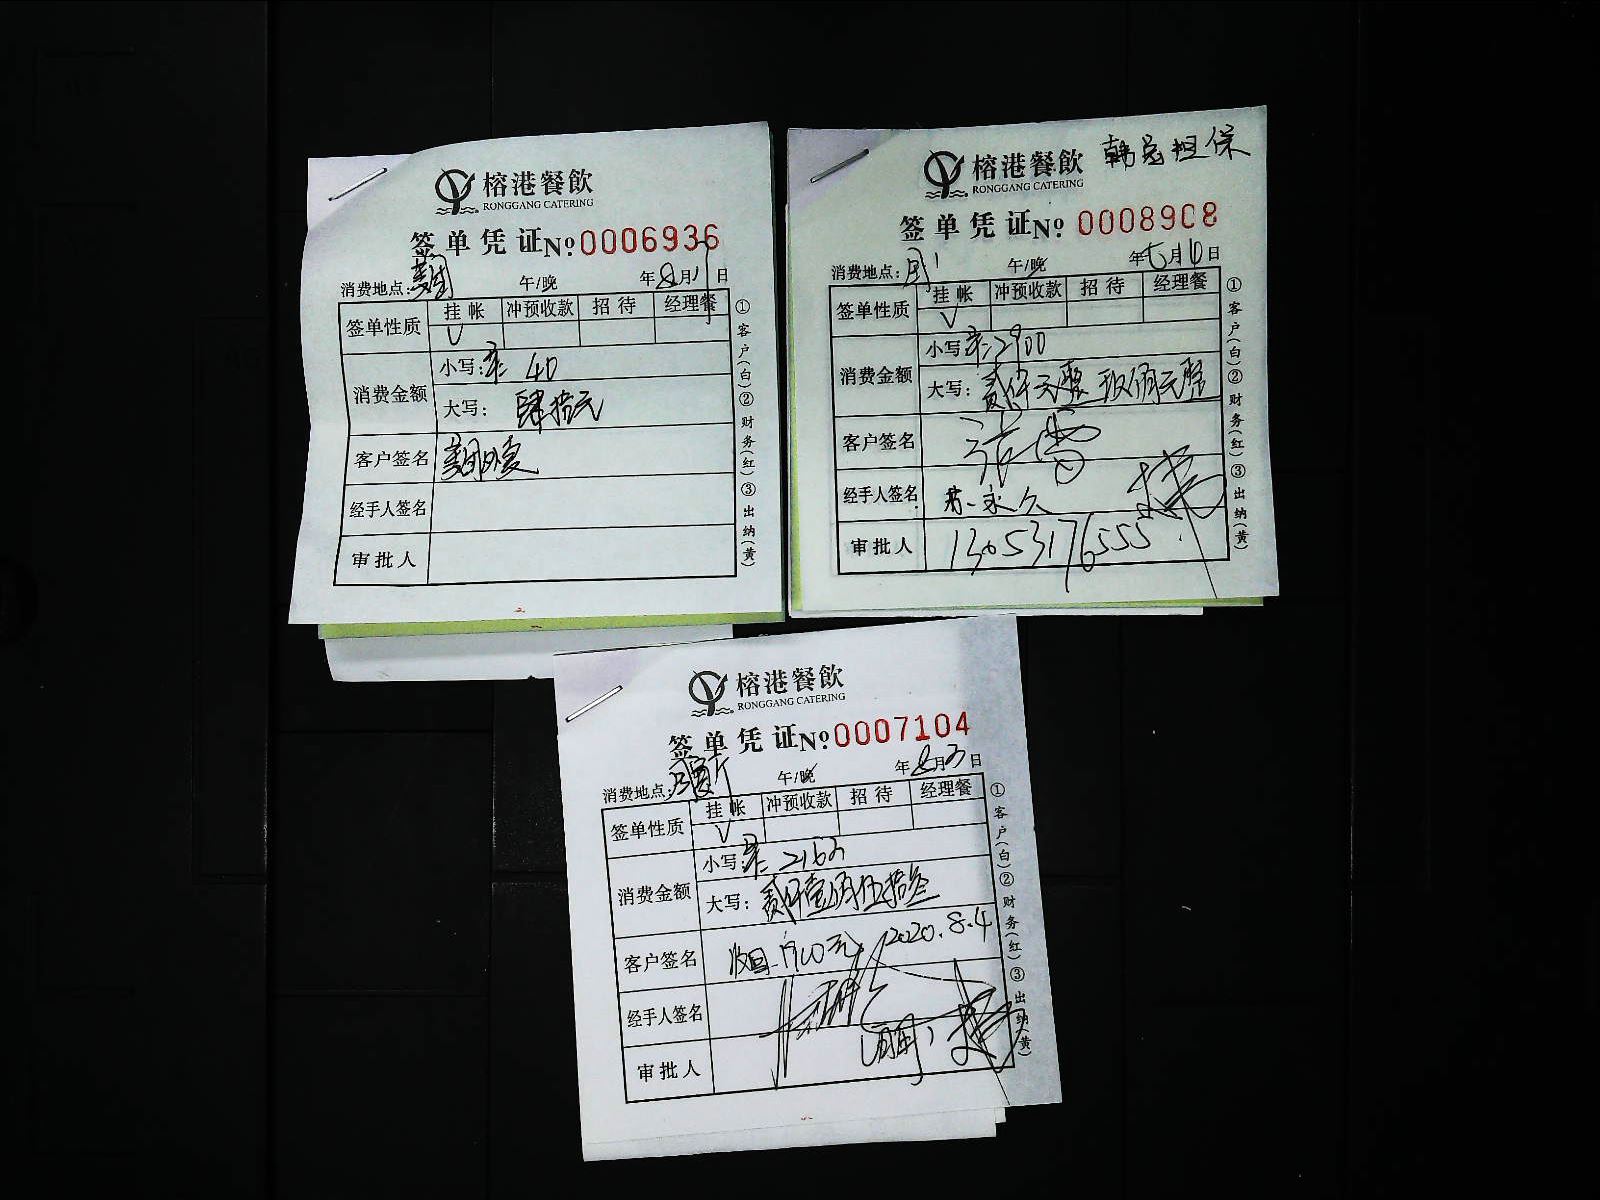 榕港餐飲
RONGGANG CATERING
签单凭证№0006936
消费地点: 午/晚 年8月 日
签单性质 挂帐 冲预收款 招待 经理餐
V
消费金额 小写: 40
大写: 肆拾元
客户签名
经手人签名
审批人
①客户(白)②财务(红)③出纳(黄)
韩总担保
榕港餐飲
RONGGANG CATERING
签单凭证№0008908
消费地点: 午/晚 年7月10日
签单性质 挂帐 冲预收款 招待 经理餐
V
消费金额 小写: 2900
大写: 贰仟元整 玖佰元整
客户签名
经手人签名
审批人 13053176555
①客户(白)②财务(红)③出纳(黄)
榕港餐飲
RONGGANG CATERING
签单凭证№0007104
消费地点: 午/晚 年8月3日
签单性质 挂帐 冲预收款 招待 经理餐
V
消费金额 小写: 2153
大写: 贰仟壹佰伍拾叁
客户签名 收回 元 2020.8.4
经手人签名
审批人
①客户(白)②财务(红)③出纳(黄)